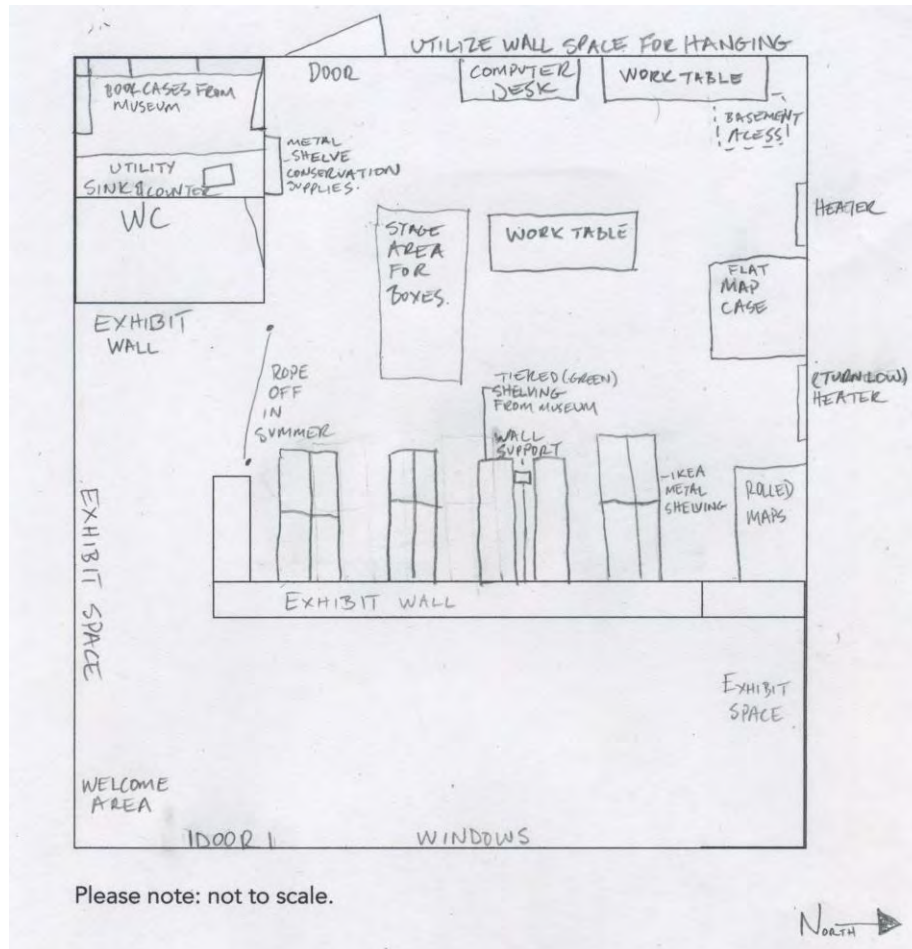 UTILIZE WALL SPACE FOR HANGING
DOOR
COMPUTER
DESK
WORK TABLE
BOOKCASES FROM
MUSEUM
BASEMENT
ACESS
METAL
SHELVE
CONSERVATION
SUPPLIES.
UTILITY
SINK & COUNTER
WC
HEATER
STAGE
AREA
FOR
BOXES.
WORK TABLE
FLAT
MAP
CASE
EXHIBIT
WALL
ROPE
OFF
IN
SUMMER
TIERED (GREEN)
SHELVING
FROM MUSEUM
(TURN LOW)
HEATER
WALL
SUPPORT
IKEA
METAL
SHELVING
ROLLED
MAPS
EXHIBIT SPACE
EXHIBIT WALL
EXHIBIT
SPACE
WELCOME
AREA
DOOR
WINDOWS
Please note: not to scale.
NORTH